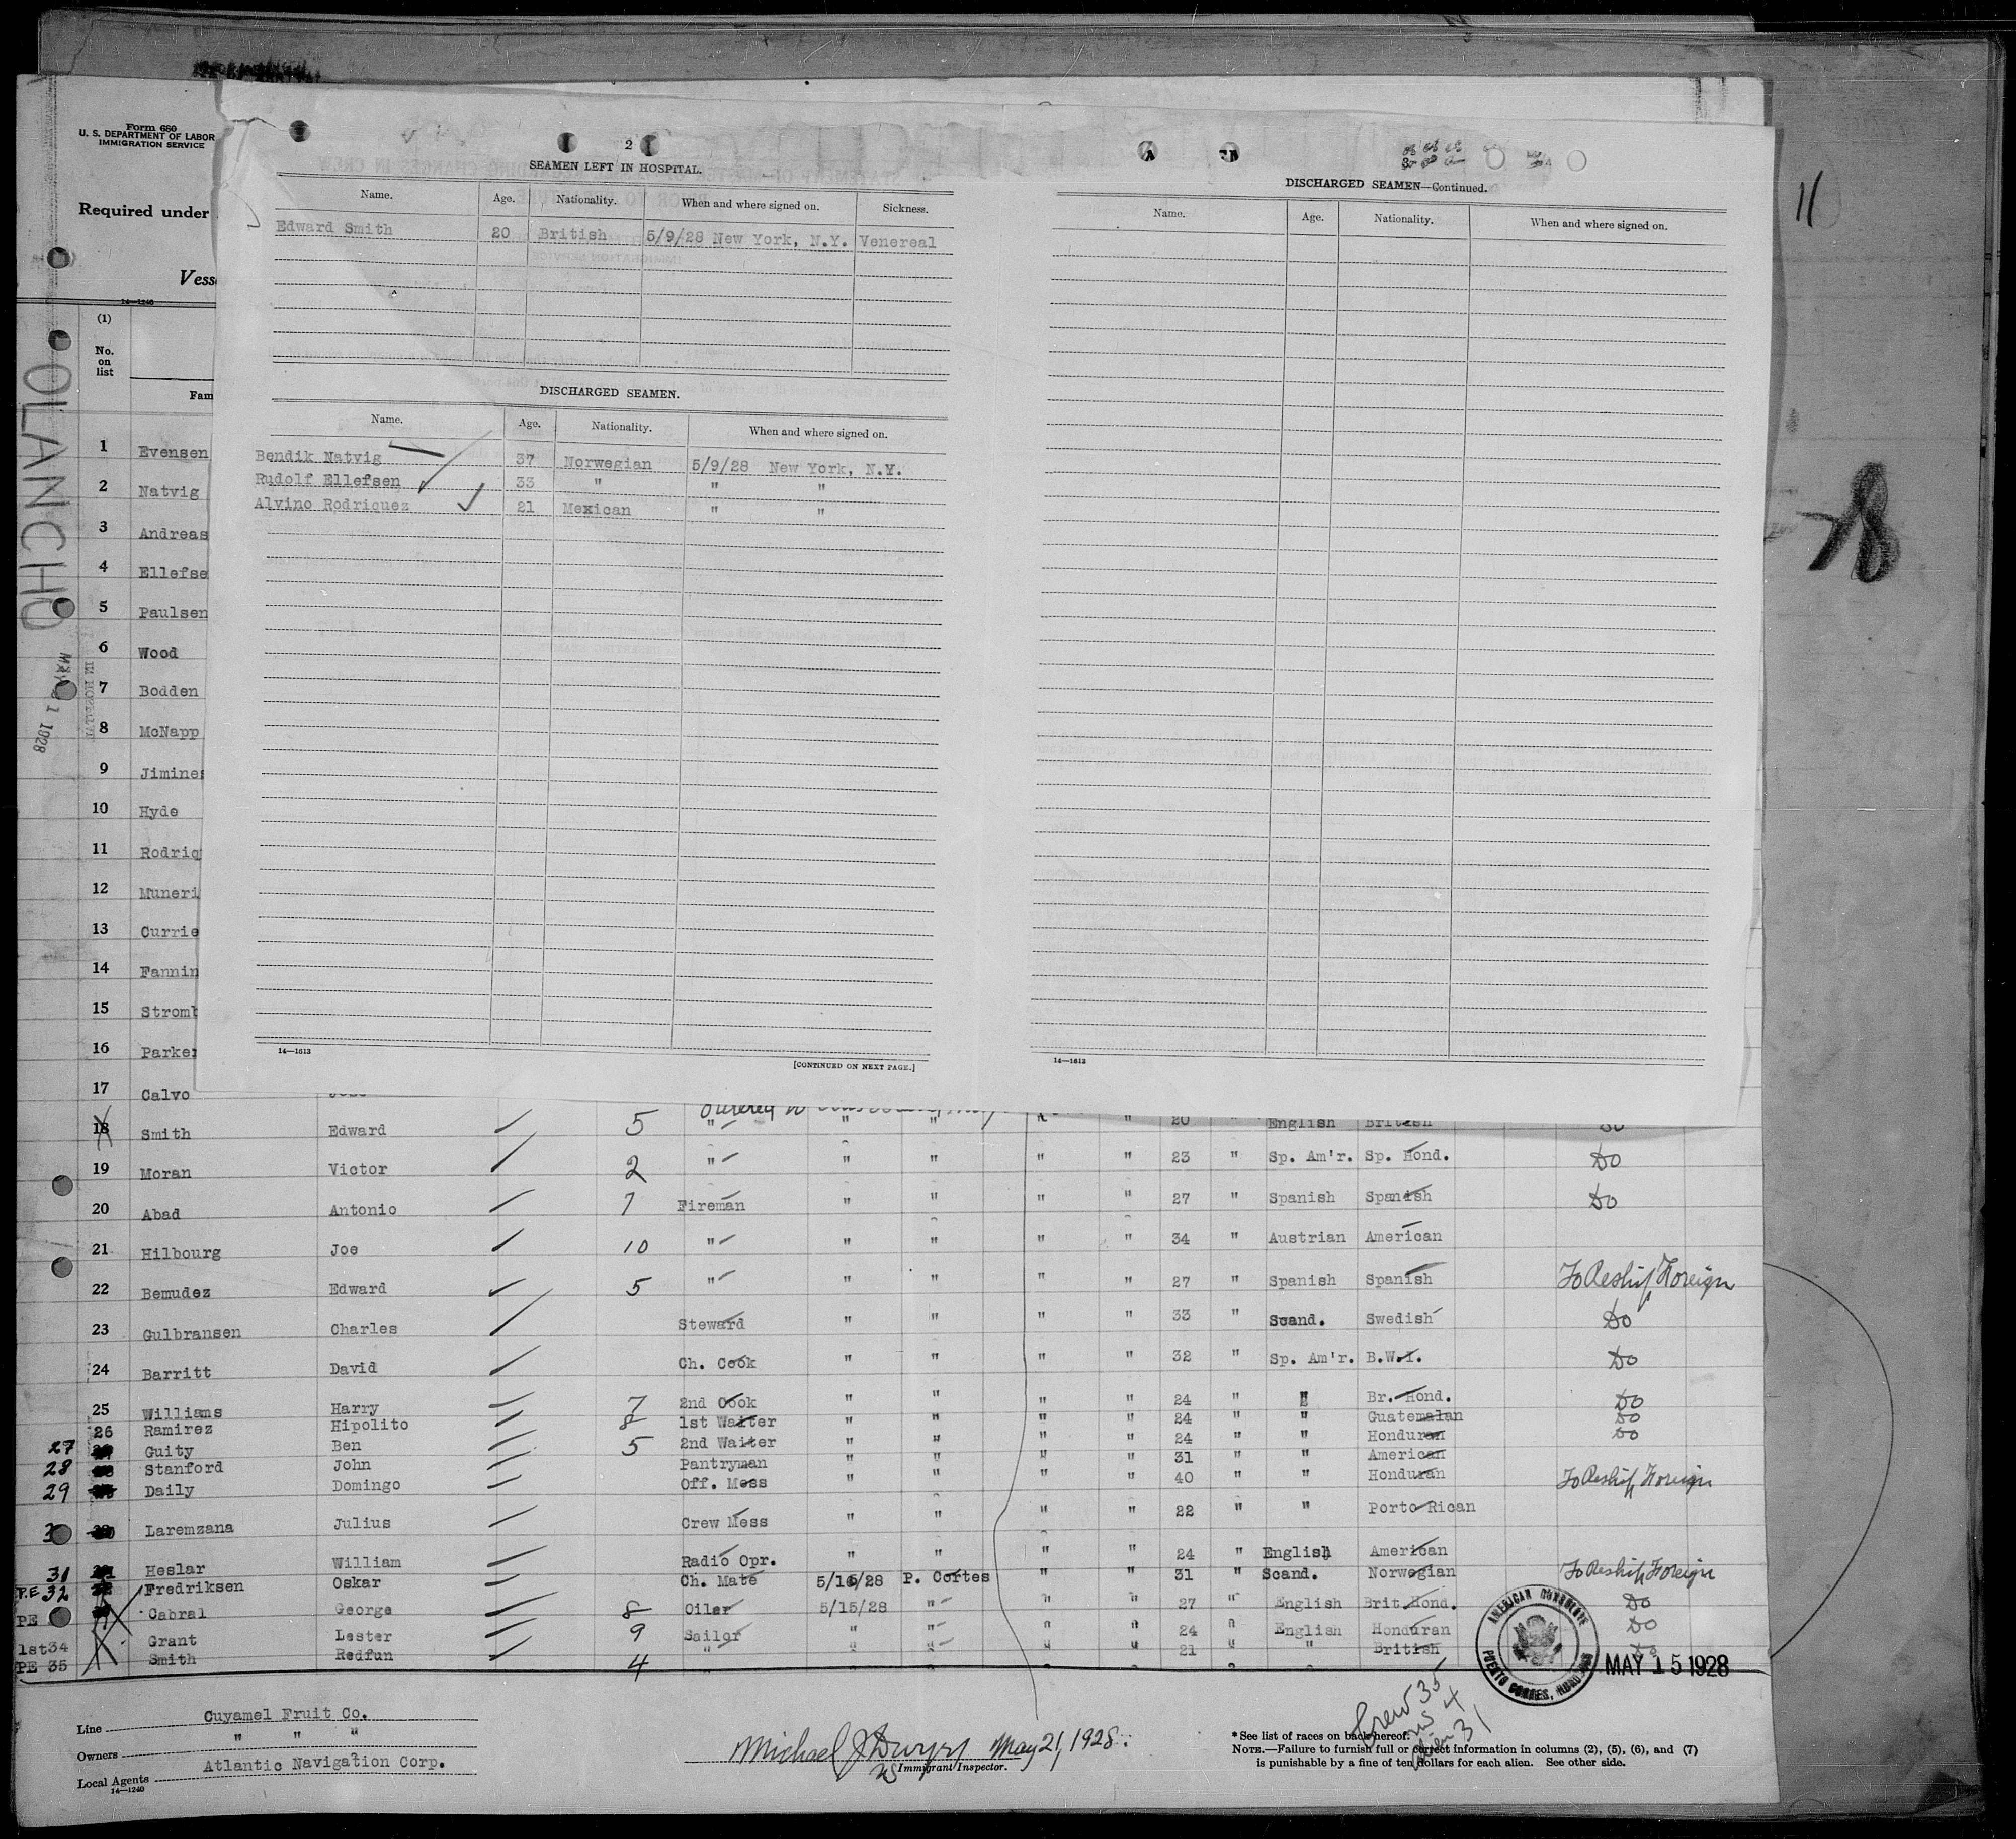 Form 680
U. S. DEPARTMENT OF LABOR
IMMIGRATION SERVICE
Required under
Vess
14—1240
(1)
No.
on
list
Fam
OLANCHO
IN HOSPITAL
1 Evensen
2 Natvig
3 Andreas
4 Ellefse
5 Paulsen
6 Wood
7 Bodden
8 McNapp
9 Jimines
10 Hyde
11 Rodriq
12 Muneri
13 Currie
14 Fannin
15 Stromb
16 Parker
17 Calvo
2
SEAMEN LEFT IN HOSPITAL.
Name. Age. Nationality. When and where signed on. Sickness.
Edward Smith 20 British 5/9/28 New York, N.Y. Venereal
DISCHARGED SEAMEN.
Name. Age. Nationality. When and where signed on.
Bendik Natvig 37 Norwegian 5/9/28 New York, N.Y.
Rudolf Ellefsen 33 " " "
Alvino Rodriquez 21 Mexican " "
14—1613
[CONTINUED ON NEXT PAGE.]
DISCHARGED SEAMEN—Continued.
Name. Age. Nationality. When and where signed on.
14—1613
11
78
18 Smith Edward 5 " " " " " 20 " English British Do
19 Moran Victor 2 " " " " " 23 " Sp. Am'r. Sp. Hond. Do
20 Abad Antonio 7 Fireman " " " " 27 " Spanish Spanish Do
21 Hilbourg Joe 10 " " " " " 34 " Austrian American
22 Bemudez Edward 5 " " " " " 27 " Spanish Spanish To Reship Foreign
23 Gulbransen Charles Steward " " " " 33 " Scand. Swedish Do
24 Barritt David Ch. Cook " " " " 32 " Sp. Am'r. B.W.I. Do
25 Williams Harry 7 2nd Cook " " " " 24 " " Br. Hond. Do
26 Ramirez Hipolito 8 1st Waiter " " " " 24 " " Guatemalan Do
27 Guity Ben 5 2nd Waiter " " " " 24 " " Honduran Do
28 Stanford John Pantryman " " " " 31 " " American
29 Daily Domingo Off. Mess " " " " 40 " " Honduran To Reship Foreign
30 Laremzana Julius Crew Mess " " " " 22 " " Porto Rican
31 Heslar William Radio Opr. " " " " 24 " English American
P.E 32 Fredriksen Oskar Ch. Mate 5/16/28 P. Cortes " " 31 " Scand. Norwegian To Reship Foreign
PE Cabral George 8 Oiler 5/15/28 " " " 27 " English Brit. Hond. Do
1st 34 Grant Lester 9 Sailor " " " " 24 " English Honduran Do
PE 35 Smith Redfun 4 " " " " " 21 " " British Do
AMERICAN CONSULATE
PUERTO CORTES, HONDURAS
MAY 15 1928
Line Cuyamel Fruit Co.
Owners " " "
Local Agents Atlantic Navigation Corp.
14—1240
Michael J Dwyer May 21, 1928
Immigrant Inspector.
Crew 35
US 4
Alien 31
* See list of races on back hereof.
NOTE.—Failure to furnish full or correct information in columns (2), (5), (6), and (7)
is punishable by a fine of ten dollars for each alien. See other side.